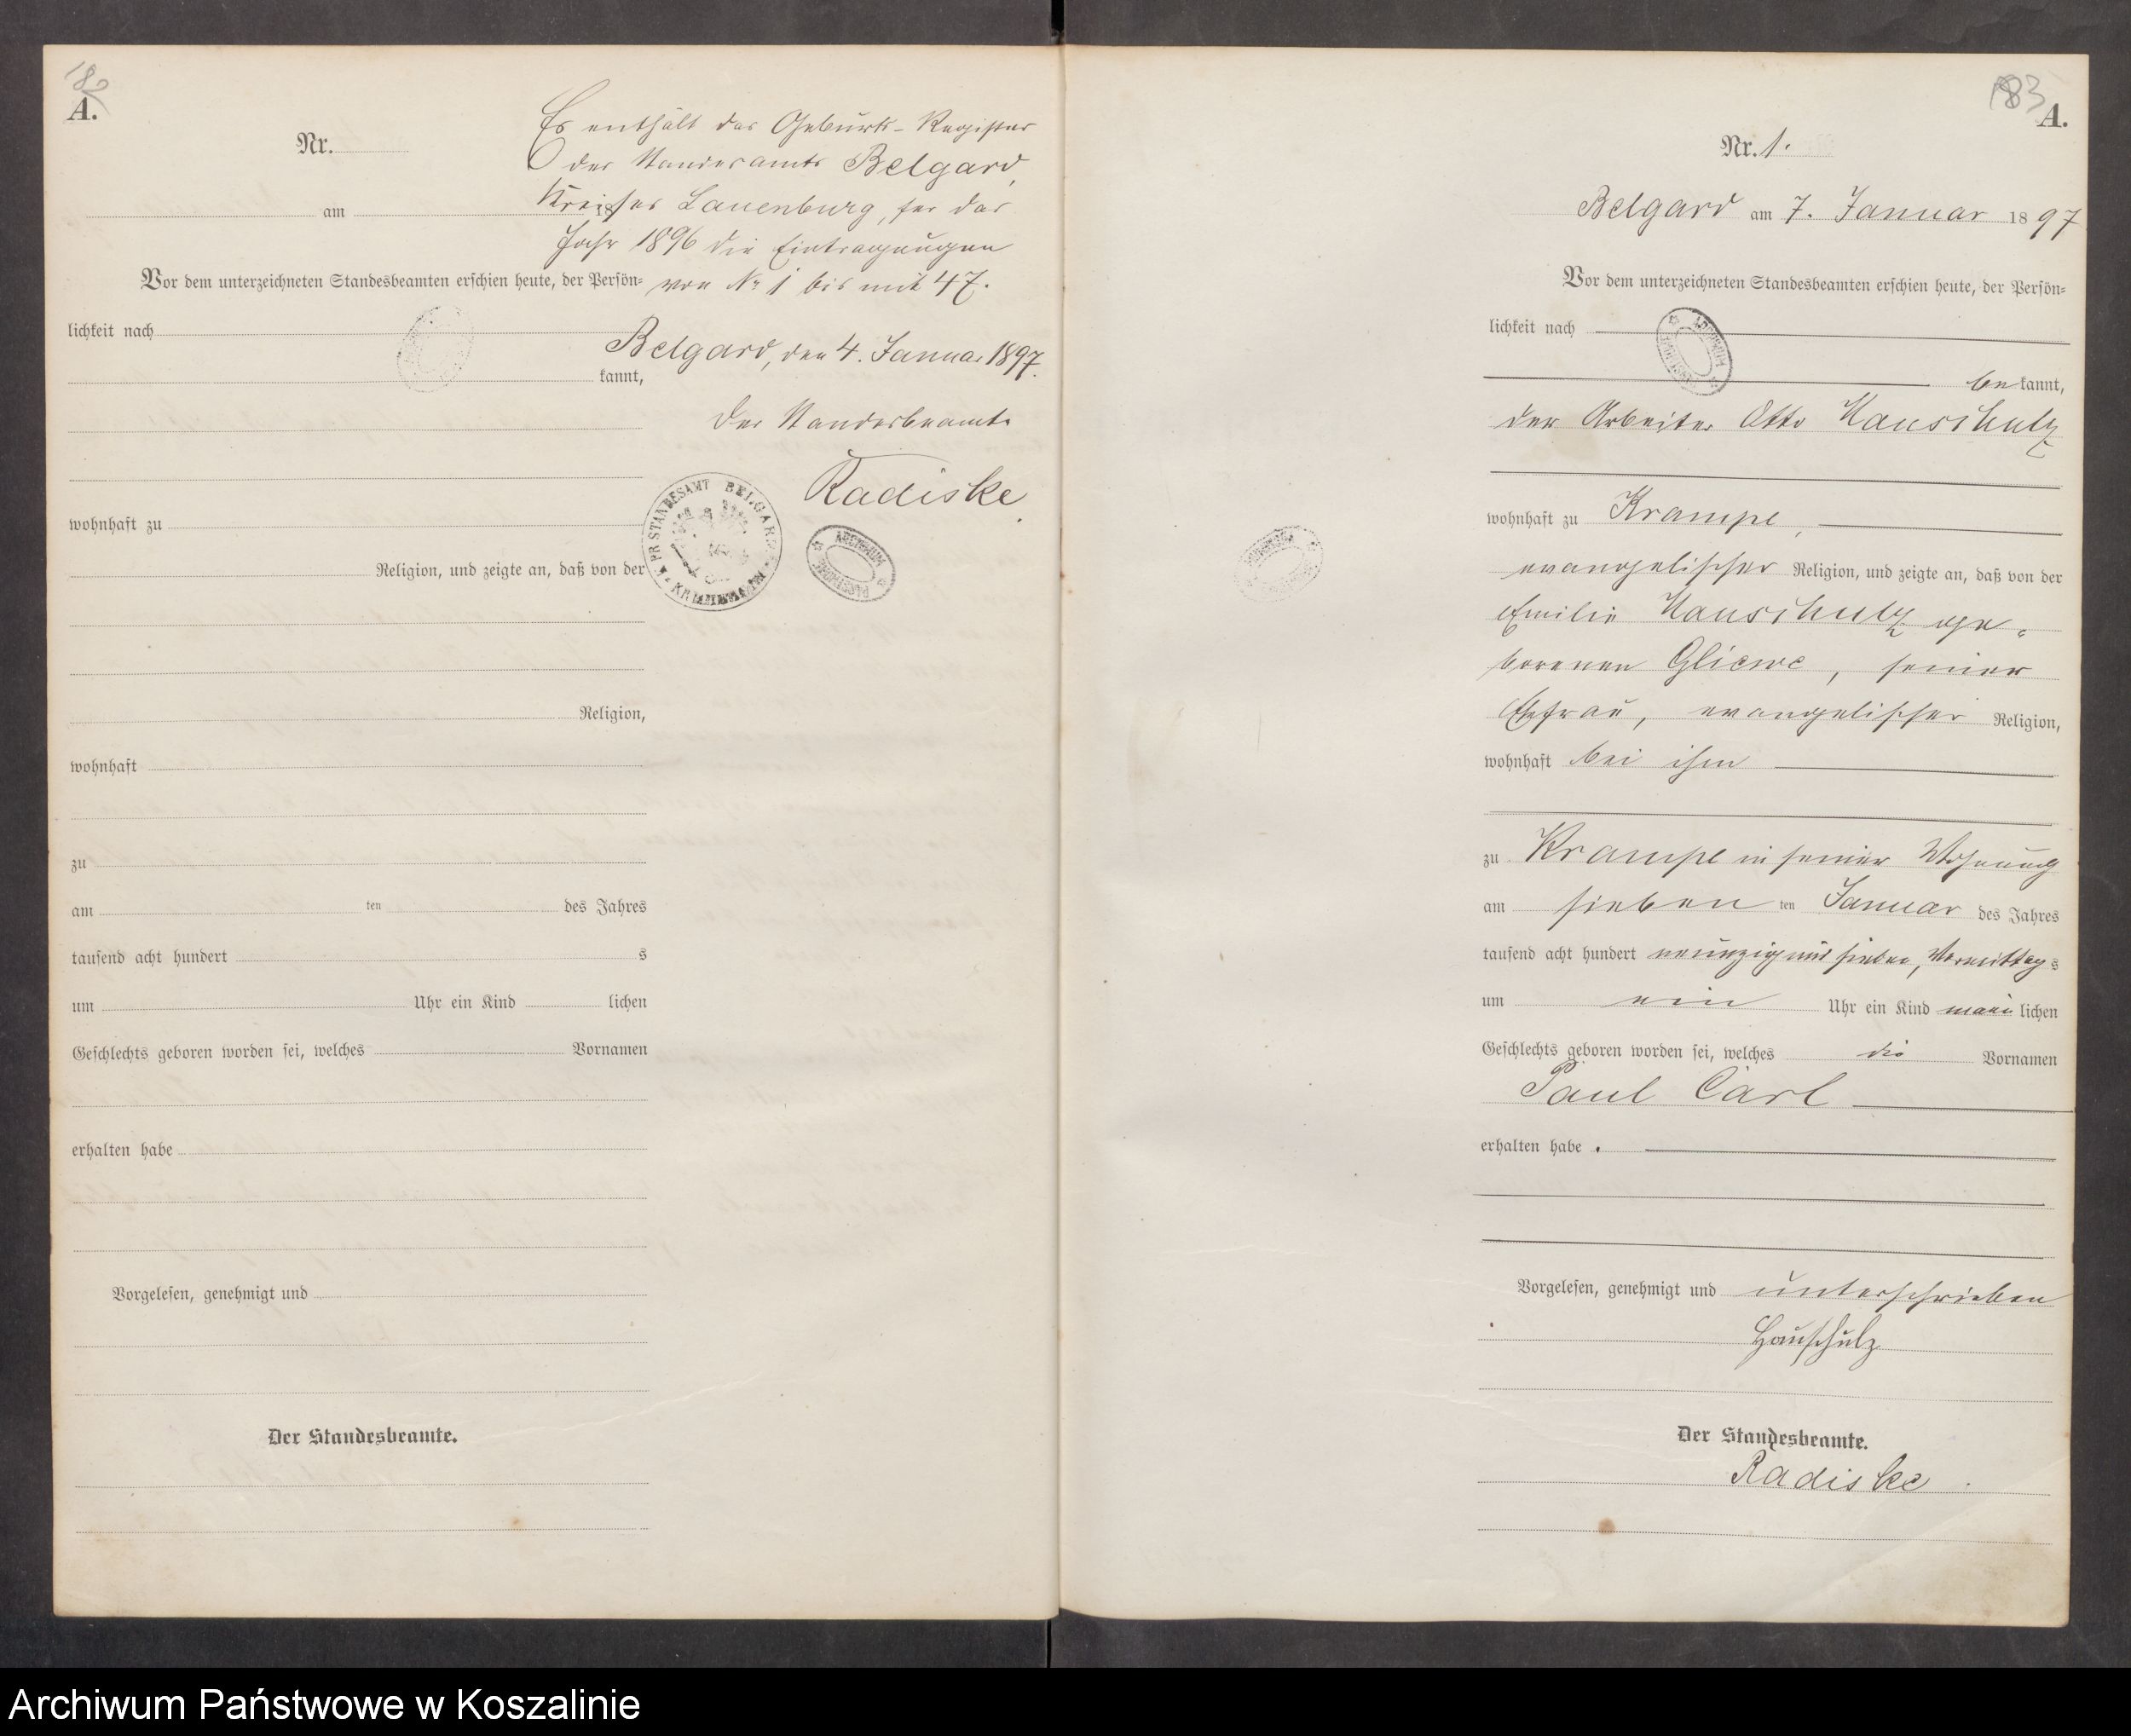 182
A.
Nr.
Es enthält das Geburts-Register
des Standesamts Belgard,
Kreises Lauenburg, für das
Jahr 1896 die Eintragungen
von No 1 bis mit 47.
Belgard, den 4. Januar 1897.
Der Standesbeamte
Radiske
am 18
Vor dem unterzeichneten Standesbeamten erschien heute, der Persön-
lichkeit nach
kannt,
wohnhaft zu
Religion, und zeigte an, daß von der
K. PR STANDESAMT BELGARD
ARCHIWUM
PAŃSTWOWE
Religion,
wohnhaft
zu
am ten des Jahres
tausend acht hundert s
um Uhr ein Kind lichen
Geschlechts geboren worden sei, welches Vornamen
erhalten habe
Vorgelesen, genehmigt und
Der Standesbeamte.
183
A.
Nr. 1.
Belgard am 7. Januar 1897
Vor dem unterzeichneten Standesbeamten erschien heute, der Persön-
lichkeit nach
bekannt,
der Arbeiter Otto Hauschulz
wohnhaft zu Krampe,
evangelischer Religion, und zeigte an, daß von der
Emilie Hauschulz ge-
borenen Gliewe, seiner
Ehefrau, evangelischer Religion,
wohnhaft bei ihm
zu Krampe in seiner Wohnung
am sieben ten Januar des Jahres
tausend acht hundert neunzig und sieben, Vormittags
um ein Uhr ein Kind männlichen
Geschlechts geboren worden sei, welches die Vornamen
Paul Carl
erhalten habe.
Vorgelesen, genehmigt und unterschrieben
Hauschulz
Der Standesbeamte.
Radiske.
Archiwum Państwowe w Koszalinie